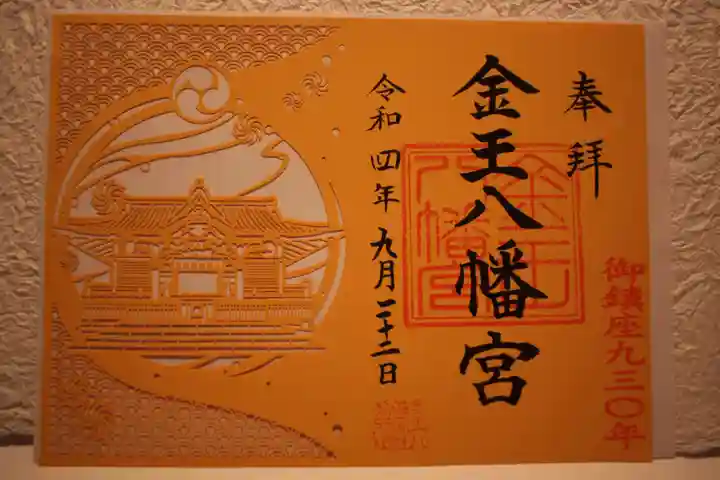 奉拝
金王八幡宮
金王八幡宮
令和四年九月二十二日
御鎮座九三〇年